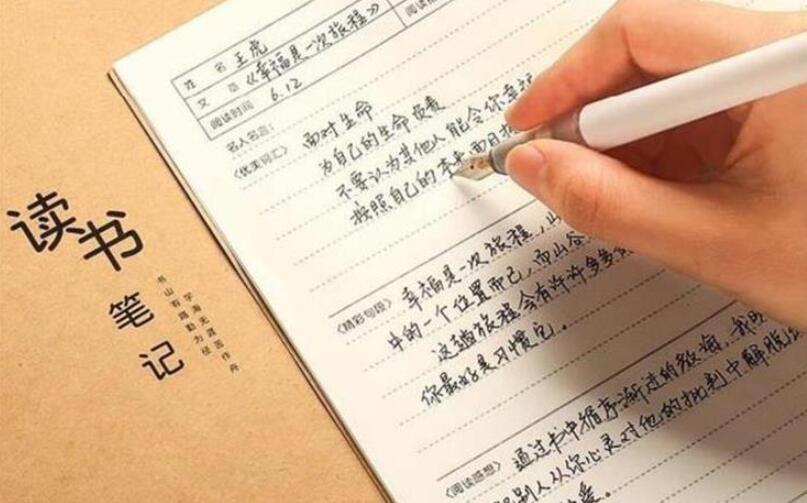 读书
笔记
书山有路勤为径
学海无涯苦作舟
姓名 王虎
文章 《幸福是一次旅程》
阅读时间 6.12
名人名言:
《优美词汇》
面对生命
为自己的生命负责
不要认为其他人能令你幸福
按照自己的本来面目
《精彩句段》
幸福是一次旅程,山
中的一个位置而已,而山谷
这趟旅程会有许许多多
你最好是习惯它。
《阅读感想》
通过书中循序渐进的教诲,我
别人从你心灵对他的批判中解脱
爱。